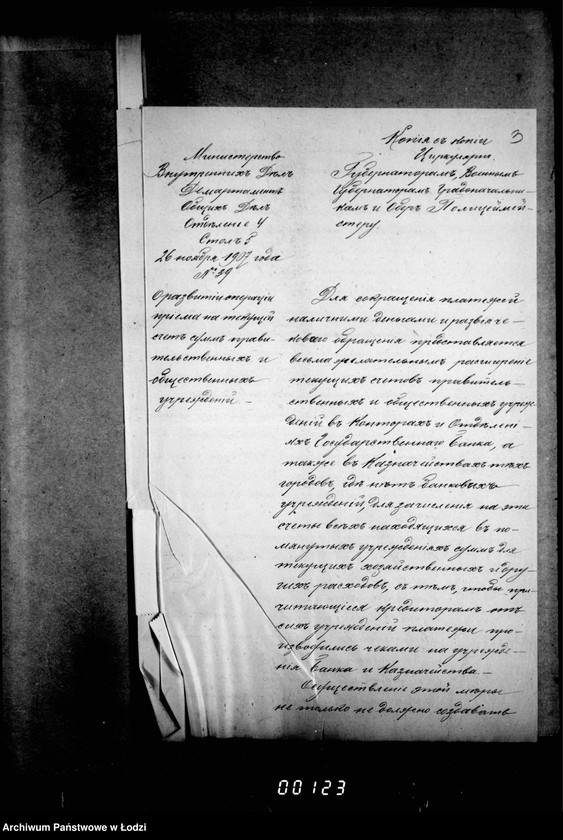 Копія съ копіи 3
Циркулярно.
Министерство
Внутреннихъ Дѣлъ
Департаментъ
Общихъ Дѣлъ
Отдѣленіе 4
Столъ 5
26 ноября 1907 года
№ 39
Губернаторамъ, Военнымъ
Губернаторамъ, Градоначальни-
камъ и Оберъ Полицеймей-
стеру.
О развитіи операціи
пріема на текущій
счетъ суммъ прави-
тельственныхъ и
общественныхъ
учрежденій –
Для сокращенія платежей
наличными деньгами и развитія
чековаго обращенія представляется
весьма желательнымъ расширеніе
текущихъ счетовъ правитель-
ственныхъ и общественныхъ учреж-
деній въ Конторахъ и Отдѣлені-
яхъ Государственнаго Банка, а
также въ Казначействахъ тѣхъ
городовъ, гдѣ нѣтъ банковыхъ
учрежденій, для зачисленія на эти
счеты всѣхъ находящихся въ по-
мянутыхъ учрежденіяхъ суммъ для
текущихъ хозяйственныхъ и дру-
гихъ расходовъ, съ тѣмъ, чтобы при-
читающіеся кредиторамъ отъ
сихъ учрежденій платежи про-
изводились чеками на учрежде-
нія Банка и Казначейства. –
Осуществленіе этой мѣры
не только не должно создавать
00123
Archiwum Państwowe w Łodzi